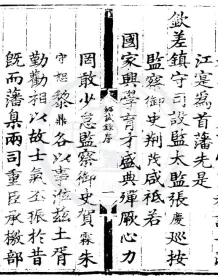 江寔為首藩先是
欽差鎮守司設監太監張慶巡按
監察御史荆茂咸祗若
國家興學育才盛典殫厥心力
罔敢少怠監察御史賀森朱
守恕黎鼎各以事涖茲土胥
勤勸相以故士氣丕振於昔
既而藩臬兩司重臣承檄部